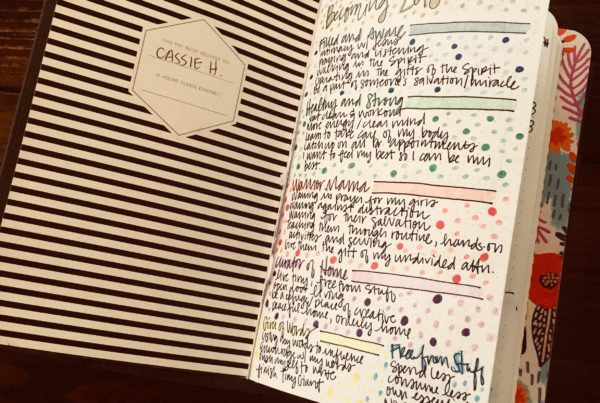 THIS DAY BOOK BELONGS TO:
CASSIE H.
IF FOUND PLEASE CONTACT:
Becoming
Filled and Aware
intimacy w/ Jesus
praying and listening
walking in the Spirit
operating in the gifts of the Spirit
be a part of someone's salvation/miracle
Healthy and Strong
eat clean & workout
more energy/clear mind
learn to take care of my body
catching on all dr appointments
I want to feel my best so I can be my
best.
Warrior Mama
Waring in prayer for my girls
Waring against distraction
Waring for their salvation
teaching them through routine, hands-on
activities and serving
Give them the gift of my undivided attn.
Curator of Home
live tiny/free from stuff
living
be a refuge/place of creative
peaceful home, orderly home
Girl of Words
Using my words to influence
w/ my words
push myself to write
finish Tiny Giant
Free from Stuff
Spend less
consume less
own